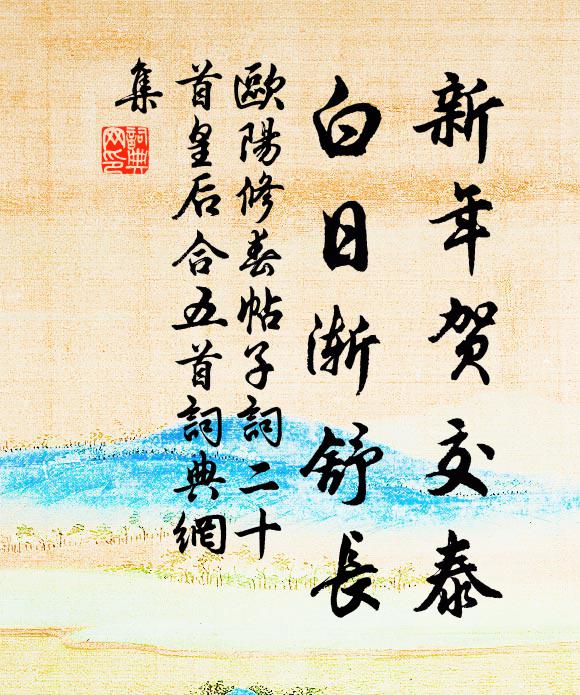 新年賀交泰
白日漸舒長
歐陽修春帖子詞二十
首皇后合五首詞典網
集
詞典
网印